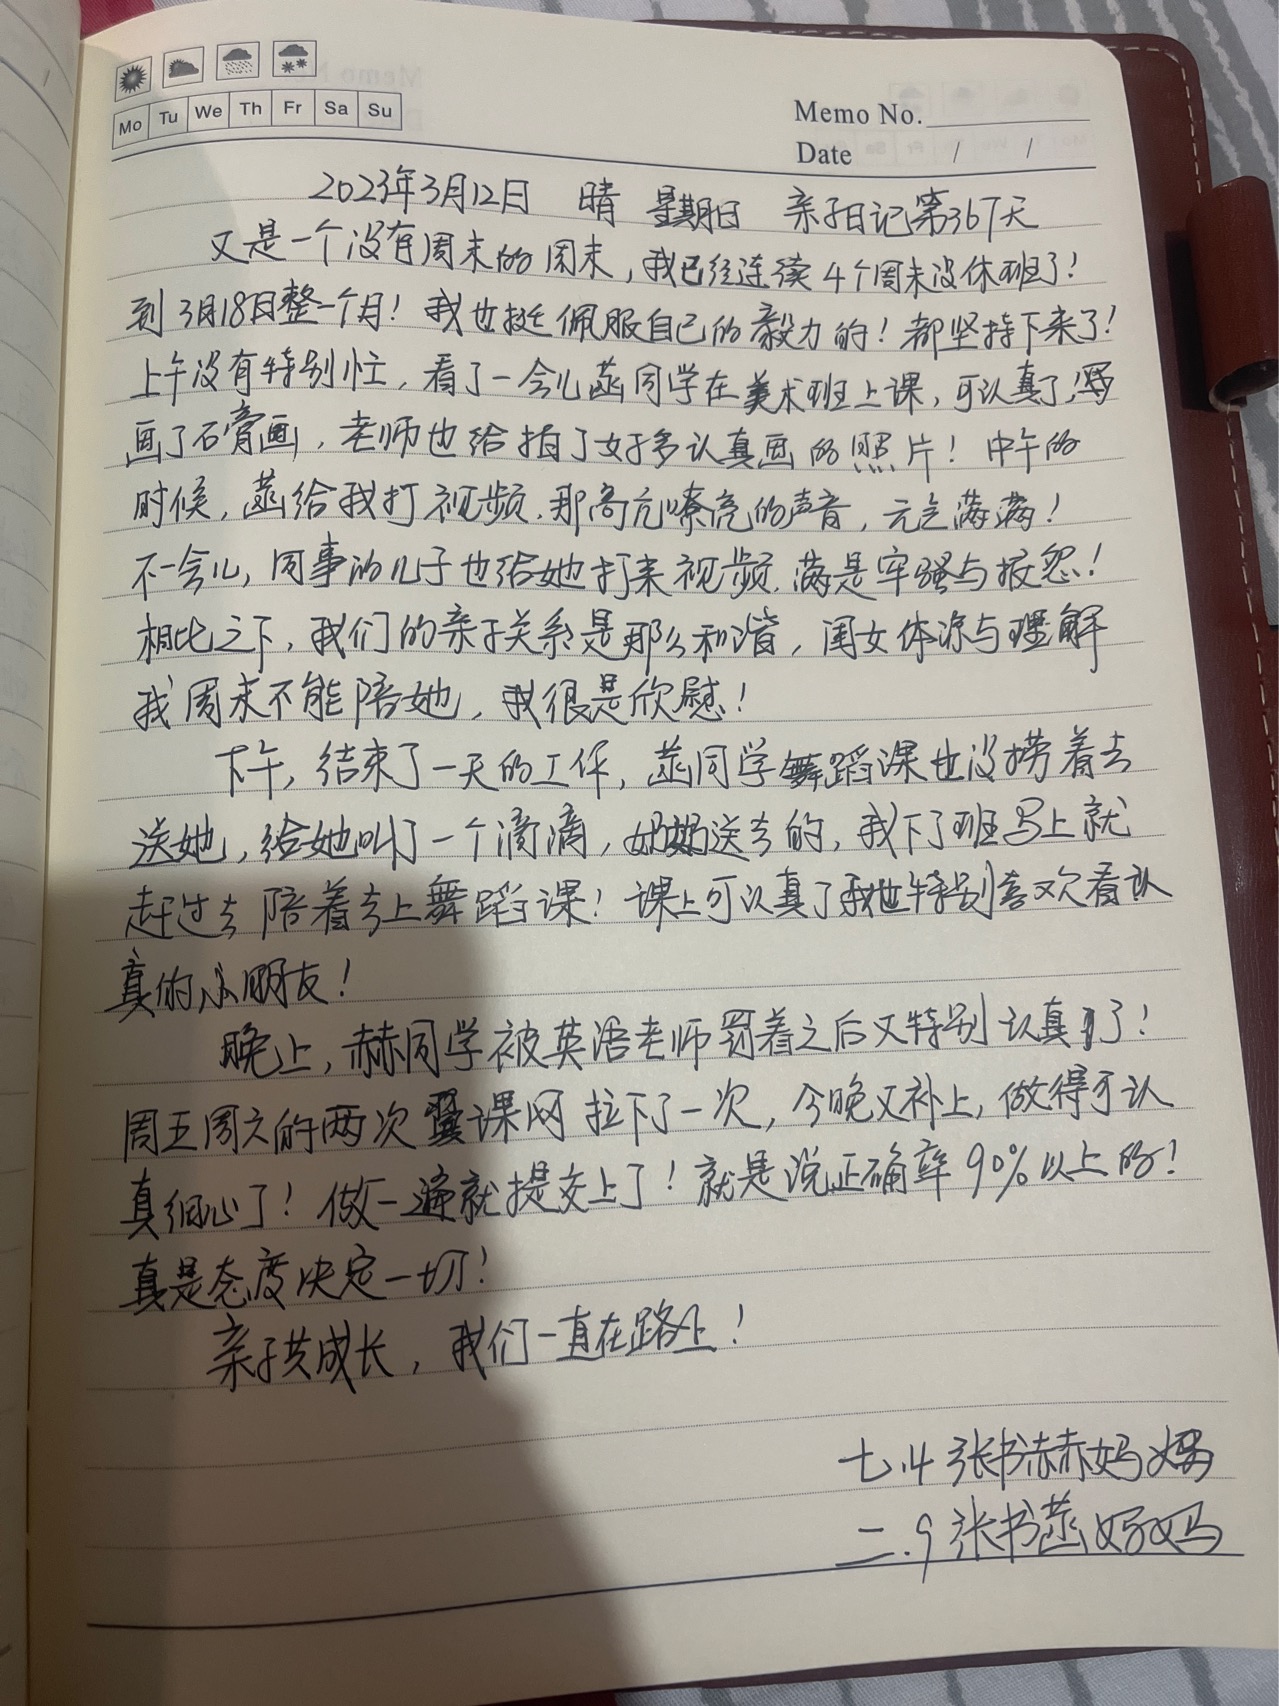 Mo Tu We Th Fr Sa Su
Memo No.
Date / /
2023年3月12日 晴 星期日 亲子日记第367天
又是一个没有周末的周末，我已经连续4个周末没休班了！
到3月18日整一个月！我也挺佩服自己的毅力的！都坚持下来了！
上午没有特别忙，看了一会儿菡同学在美术班上课，可认真了！
画了石膏画，老师也给拍了好多认真画的照片！中午的
时候，菡给我打视频，那高亢嘹亮的声音，元气满满！
不一会儿，同事的儿子也给她打来视频，满是牢骚与报怨！
相比之下，我们的亲子关系是那么和谐，闺女体凉与理解
我周末不能陪她，我很是欣慰！
下午，结束了一天的工作，菡同学舞蹈课也没捞着去
送她，给她叫了一个滴滴，奶奶送去的，我下了班马上就
赶过去陪着去上舞蹈课！课上可认真了我也特别喜欢看认
真的小朋友！
晚上，赫同学被英语老师罚着之后又特别认真了！
周五周六的两次翼课网拉下了一次，今晚又补上，做得可认
真细心了！做一遍就提交上了！就是说正确率90%以上的！
真是态度决定一切！
亲子共成长，我们一直在路上！
七.4 张书赫妈妈
二.9 张书菡妈妈